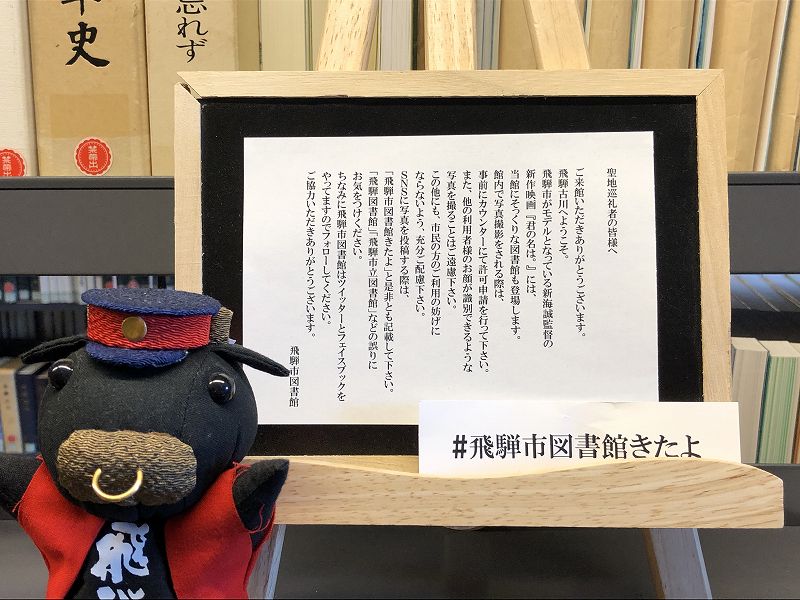 聖地巡礼者の皆様へ
ご来館いただきありがとうございます。
飛騨古川へようこそ。
飛騨市がモデルとなっている新海誠監督の
新作映画『君の名は。』には、
当館にそっくりな図書館も登場します。
館内で写真撮影をされる際は、
事前にカウンターにて許可申請を行って下さい。
また、他の利用者様のお顔が識別できるような
写真を撮ることはご遠慮下さい。
この他にも、市民の方のご利用の妨げに
ならないよう、充分ご配慮下さい。
SNSに写真を投稿する際は、
「飛騨市図書館きたよ」と是非とも記載して下さい。
「飛騨図書館」「飛騨市立図書館」などの誤りに
お気をつけください。
ちなみに飛騨市図書館はツイッターとフェイスブックを
やってますのでフォローしてください。
ご協力いただきありがとうございます。
飛騨市図書館
#飛騨市図書館きたよ
史
忘れず
禁帯出
禁帯出
飛